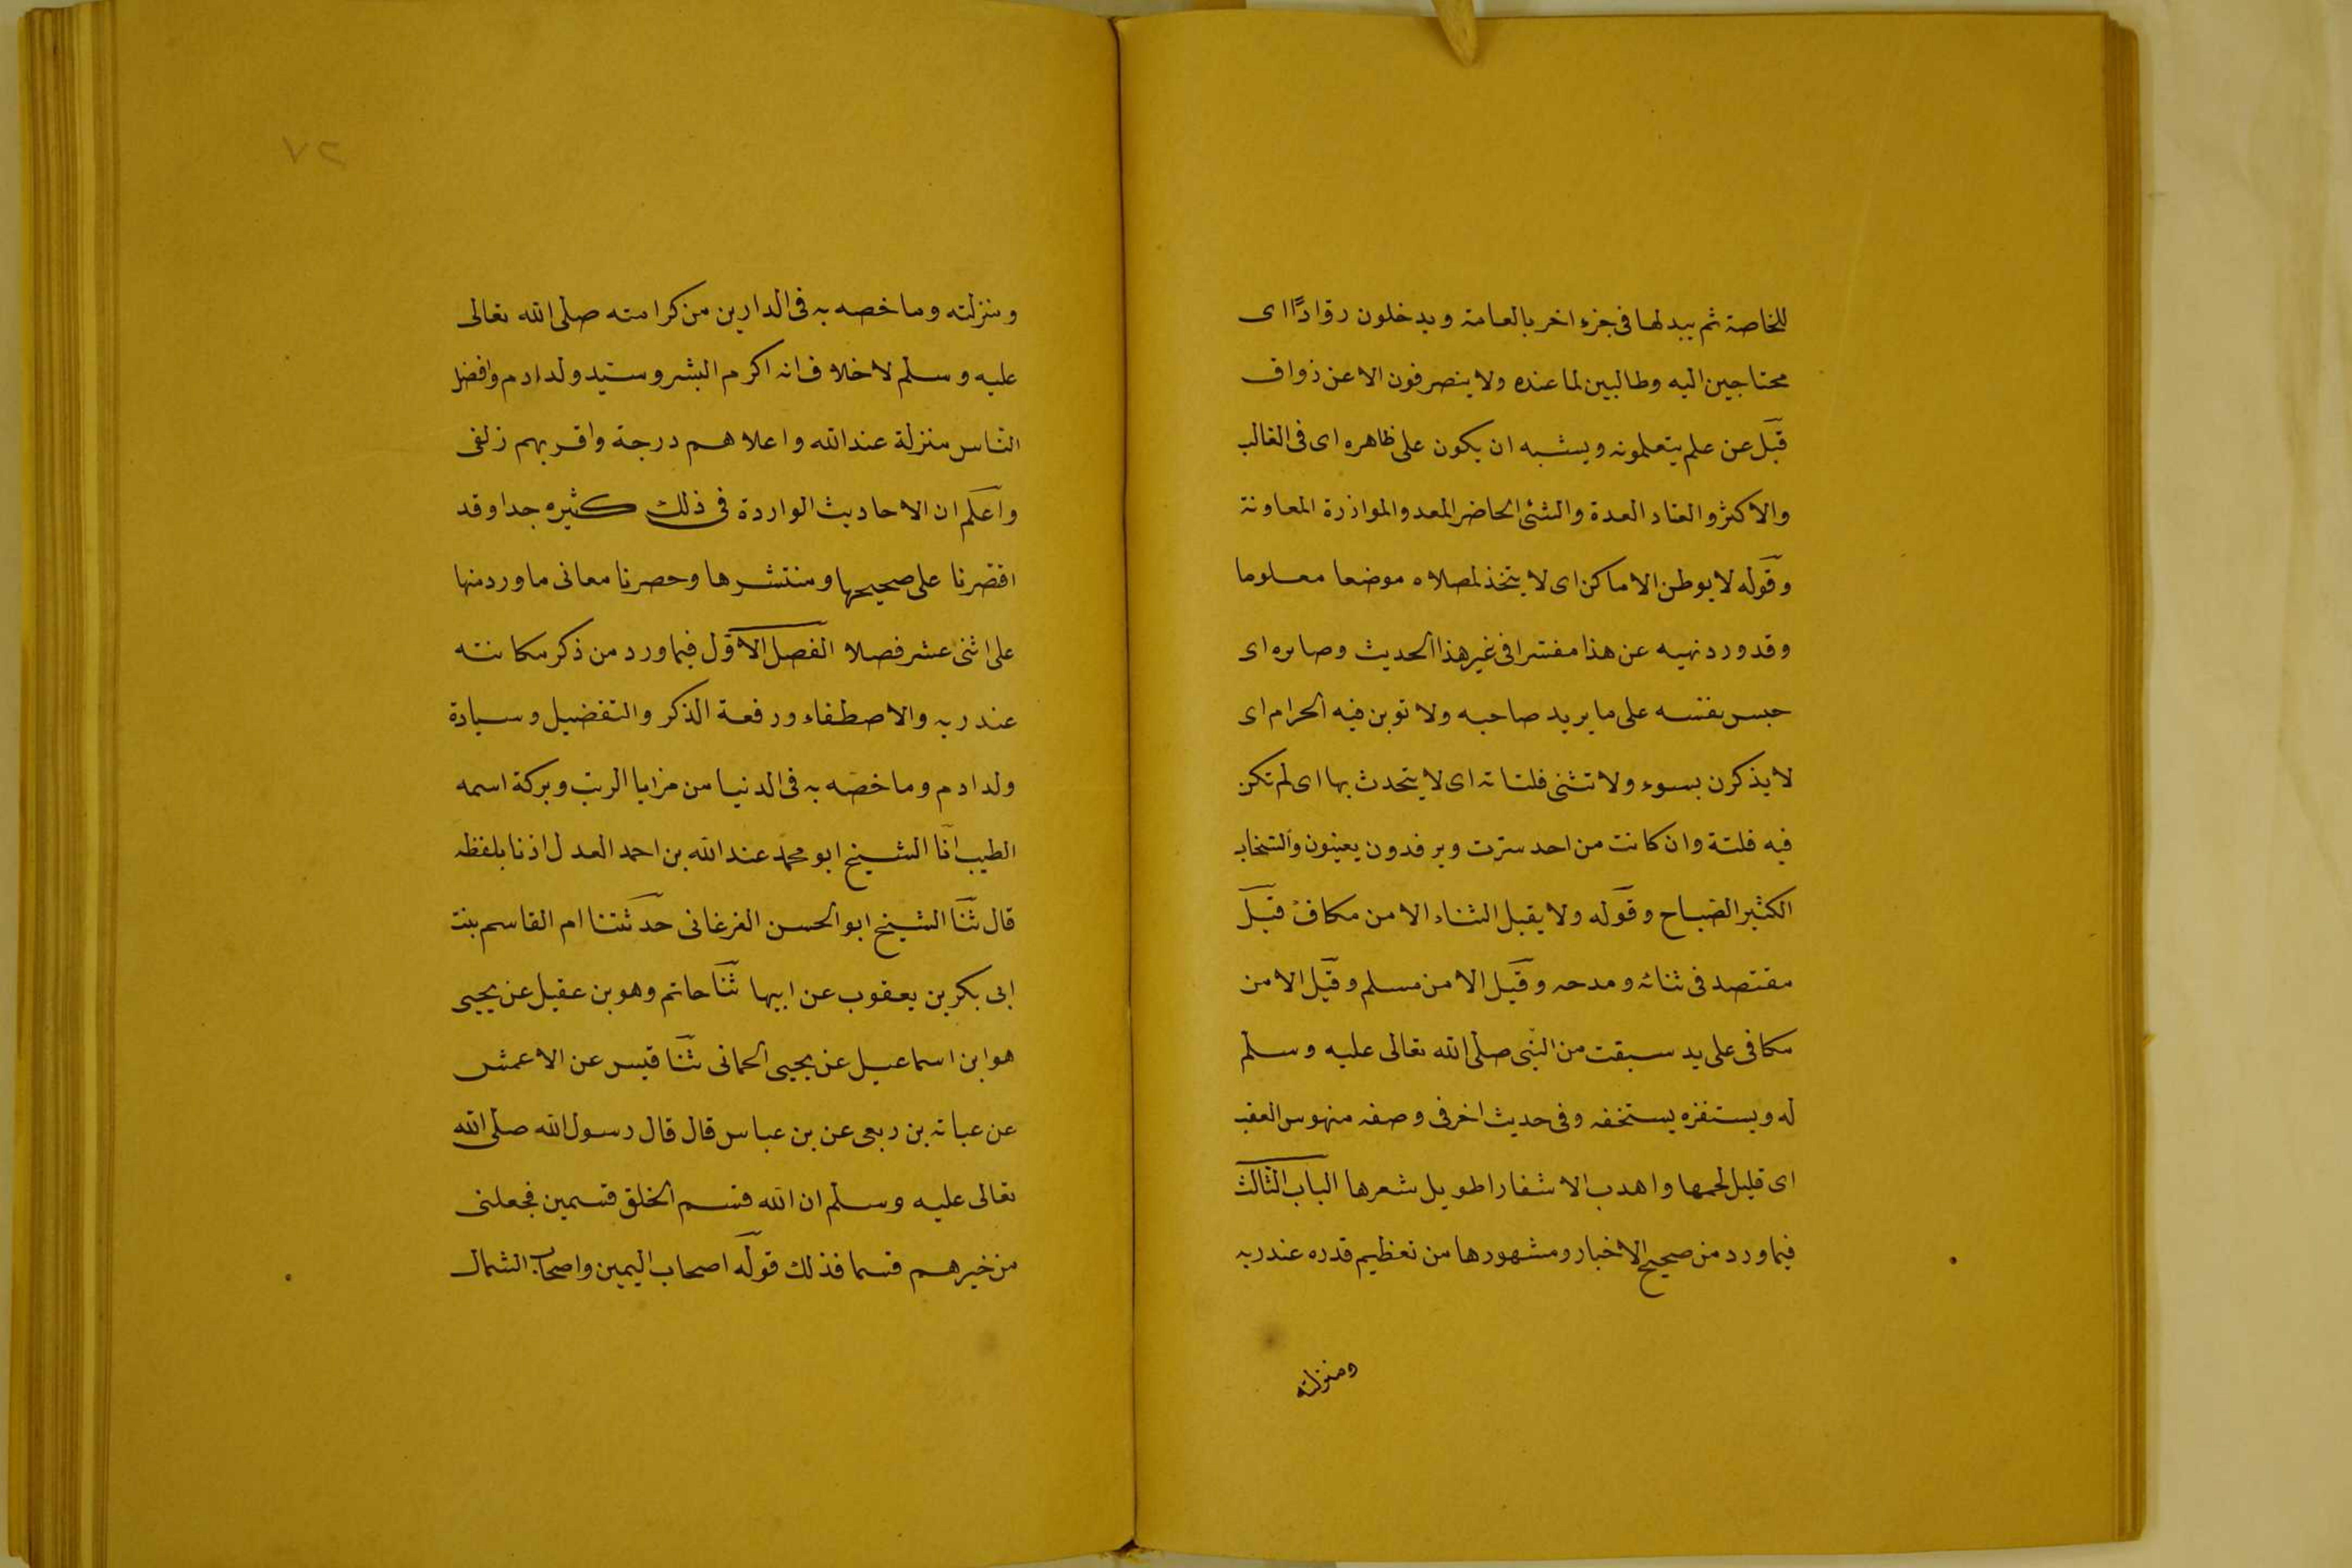 للخاصة ثم يبدلها فى جزء اخر بالعامة ويدخلون روّادًا اى
محتاجين اليه وطالبين لما عنده ولا ينصرفون الا عن ذواق
قيل عن علم يتعلمونه ويشبه ان يكون على ظاهره اى فى الغالب
والاكثر والعتاد العدة والشئ الحاضر المعد والموازرة المعاونة
وقوله لا يوطن الاماكن اى لا يتخذ لمصلاه موضعا معلوما
وقد ورد نهيه عن هذا مفسرا فى غير هذا الحديث وصابره اى
حبس نفسه على ما يريد صاحبه ولا توبن فيه الحرام اى
لا يذكرن بسوء ولا تثنى فلتاته اى لا يتحدث بها اى لم تكن
فيه فلتة وان كانت من احد سترت ويرفدون يعينون والسخاب
الكثير الصياح وقوله ولا يقبل الثناء الا من مكافئ قيل
مقتصد فى ثنائه ومدحه وقيل الا من مسلم وقيل الا من
مكافى على يد سبقت من النبى صلى الله تعالى عليه وسلم
له ويستفزه يستخفه وفى حديث اخر فى وصفه منهوس العقب
اى قليل لحمها واهدب الاشفار اطويل شعرها الباب الثالث
فيما ورد من صحيح الاخبار ومشهورها من تعظيم قدره عند ربه
ومنزلته
٢٧
ومنزلته وما خصه به فى الدارين من كرامته صلى الله تعالى
عليه وسلم لا خلاف انه اكرم البشر وسيد ولد ادم وافضل
الناس منزلة عند الله واعلاهم درجة واقربهم زلفى
واعلم ان الاحاديث الواردة فى ذلك كثيره جدا وقد
اقتصرنا على صحيحها ومنتشرها وحصرنا معانى ما ورد منها
على اثنى عشر فصلا الفصل الاول فيما ورد من ذكر مكانته
عند ربه والاصطفاء ورفعة الذكر والتفضيل وسيادة
ولد ادم وما خصه به فى الدنيا من مزايا الرتب وبركة اسمه
الطيب انا الشيخ ابو محمد عند الله بن احمد العدل اذنا بلفظه
قال ثنا الشيخ ابو الحسن الفرغانى حدثتنا ام القاسم بنت
ابى بكر بن يعقوب عن ابيها ثنا حاتم وهو بن عقيل عن يحيى
هو ابن اسماعيل عن يحيى الحمانى ثنا قيس عن الاعمش
عن عباته بن ربعى عن بن عباس قال قال رسول الله صلى الله
تعالى عليه وسلم ان الله قسم الخلق قسمين فجعلنى
من خيرهم قسما فذلك قوله اصحاب اليمين واصحاب الشمال